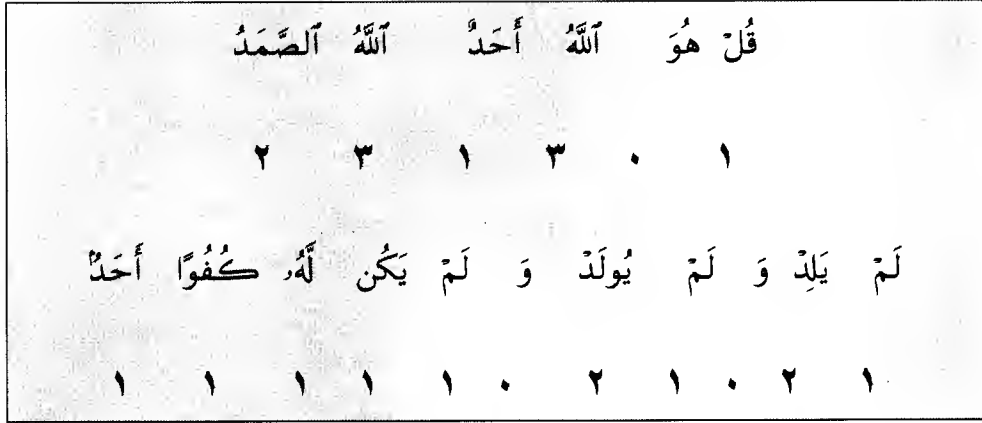 قُلْ هُوَ ٱللَّهُ أَحَدٌ ٱللَّهُ ٱلصَّمَدُ
١ ٠ ٣ ١ ٣ ٢
لَمْ يَلِدْ وَ لَمْ يُولَدْ وَ لَمْ يَكُن لَّهُۥ كُفُوًا أَحَدٌۢ
١ ٢ ٠ ١ ٢ ٠ ١ ١ ١ ١ ١